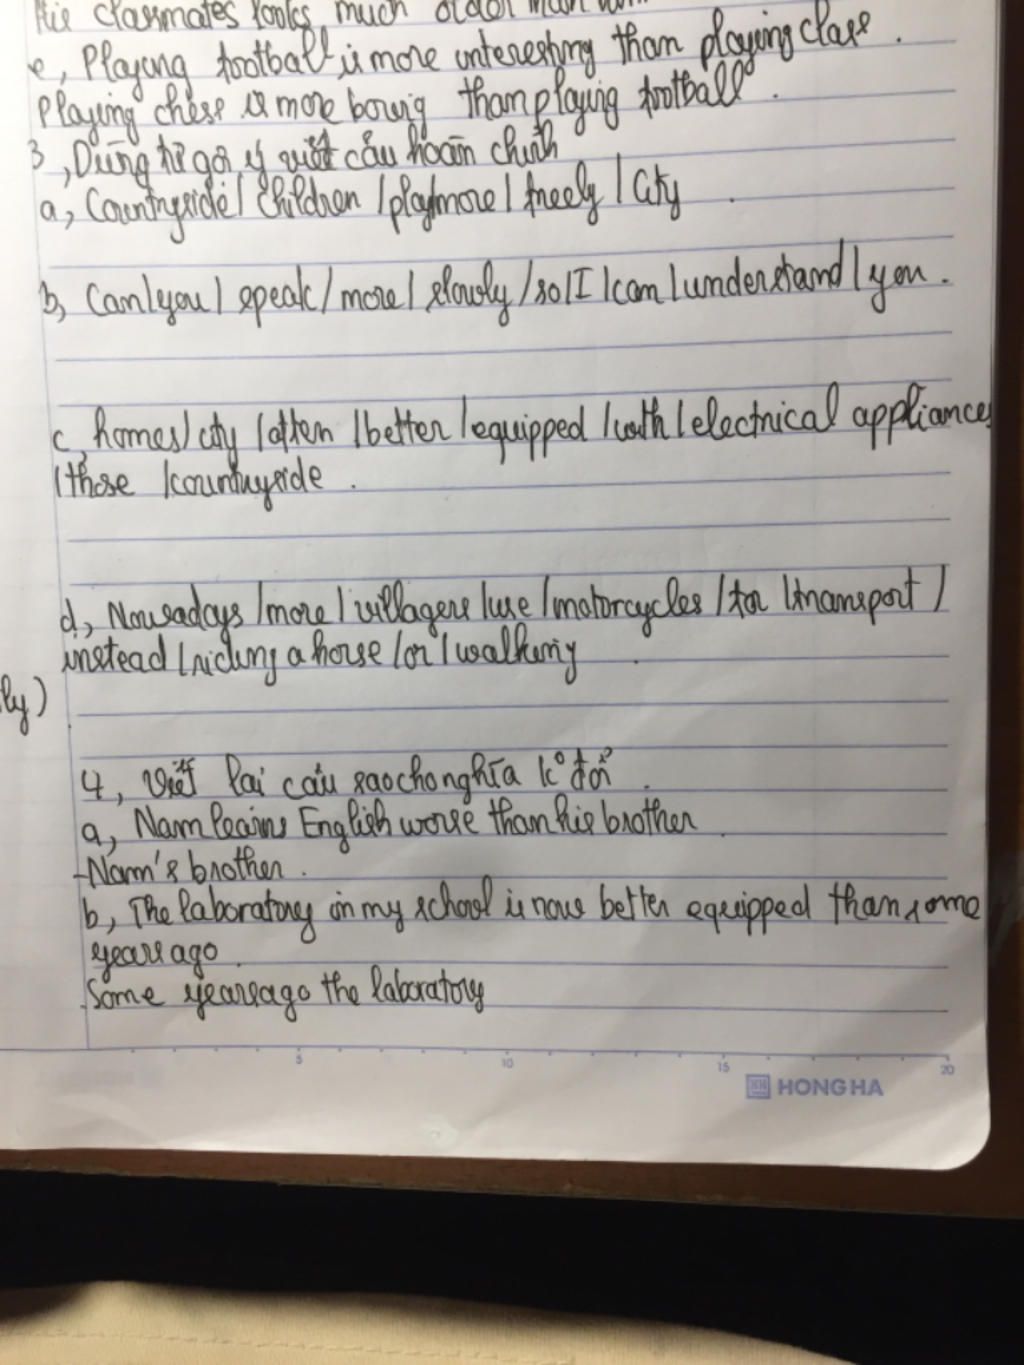 His classmates looks much older than him
e, Playing football is more interesting than playing class.
Playing chess is more boring than playing football.
3, Dùng từ gợi ý viết câu hoàn chỉnh
a, Countryside / Children / play/more / freely / City.
b, Can/you / speak / more / slowly / so/I/can/understand / you.
c, homes/ city / often / better / equipped / with / electrical appliances
/ those / countryside.
d, Nowadays / more / villagers / use / motorcycles / for / transport /
instead / riding a horse / or / walking.
ly)
4, Viết lại câu sao cho nghĩa k° đổi.
a, Nam learns English worse than his brother.
- Nam's brother.
b, The laboratory in my school is now better equipped than some
years ago.
- Some years ago the laboratory
5 10 15 20
HONG HA